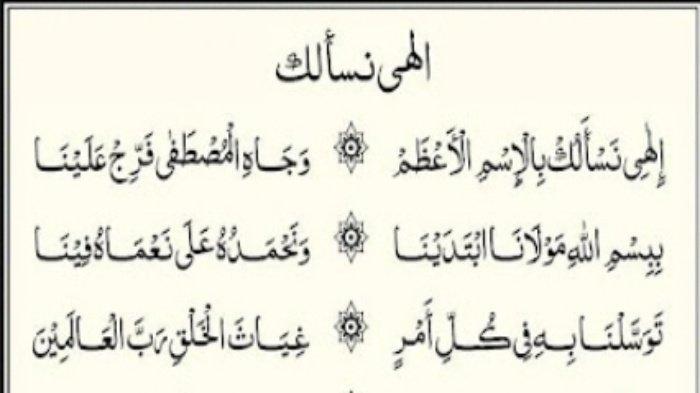 الهي نسألك
إِلٰهِي نَسْأَلُكْ بِالْإِسْمِ الْأَعْظَمْ ۞ وَجَاهِ الْمُصْطَفٰى فَرِّجْ عَلَيْنَا
بِبِسْمِ اللهِ مَوْلَانَا ابْتَدَيْنَا ۞ وَنَحْمَدُهُ عَلَى نَعْمَاهُ فِيْنَا
تَوَسَّلْنَا بِهِ فِي كُلِّ أَمْرٍ ۞ غِيَاثَ الْخَلْقِ رَبَّ الْعَالَمِيْنَ